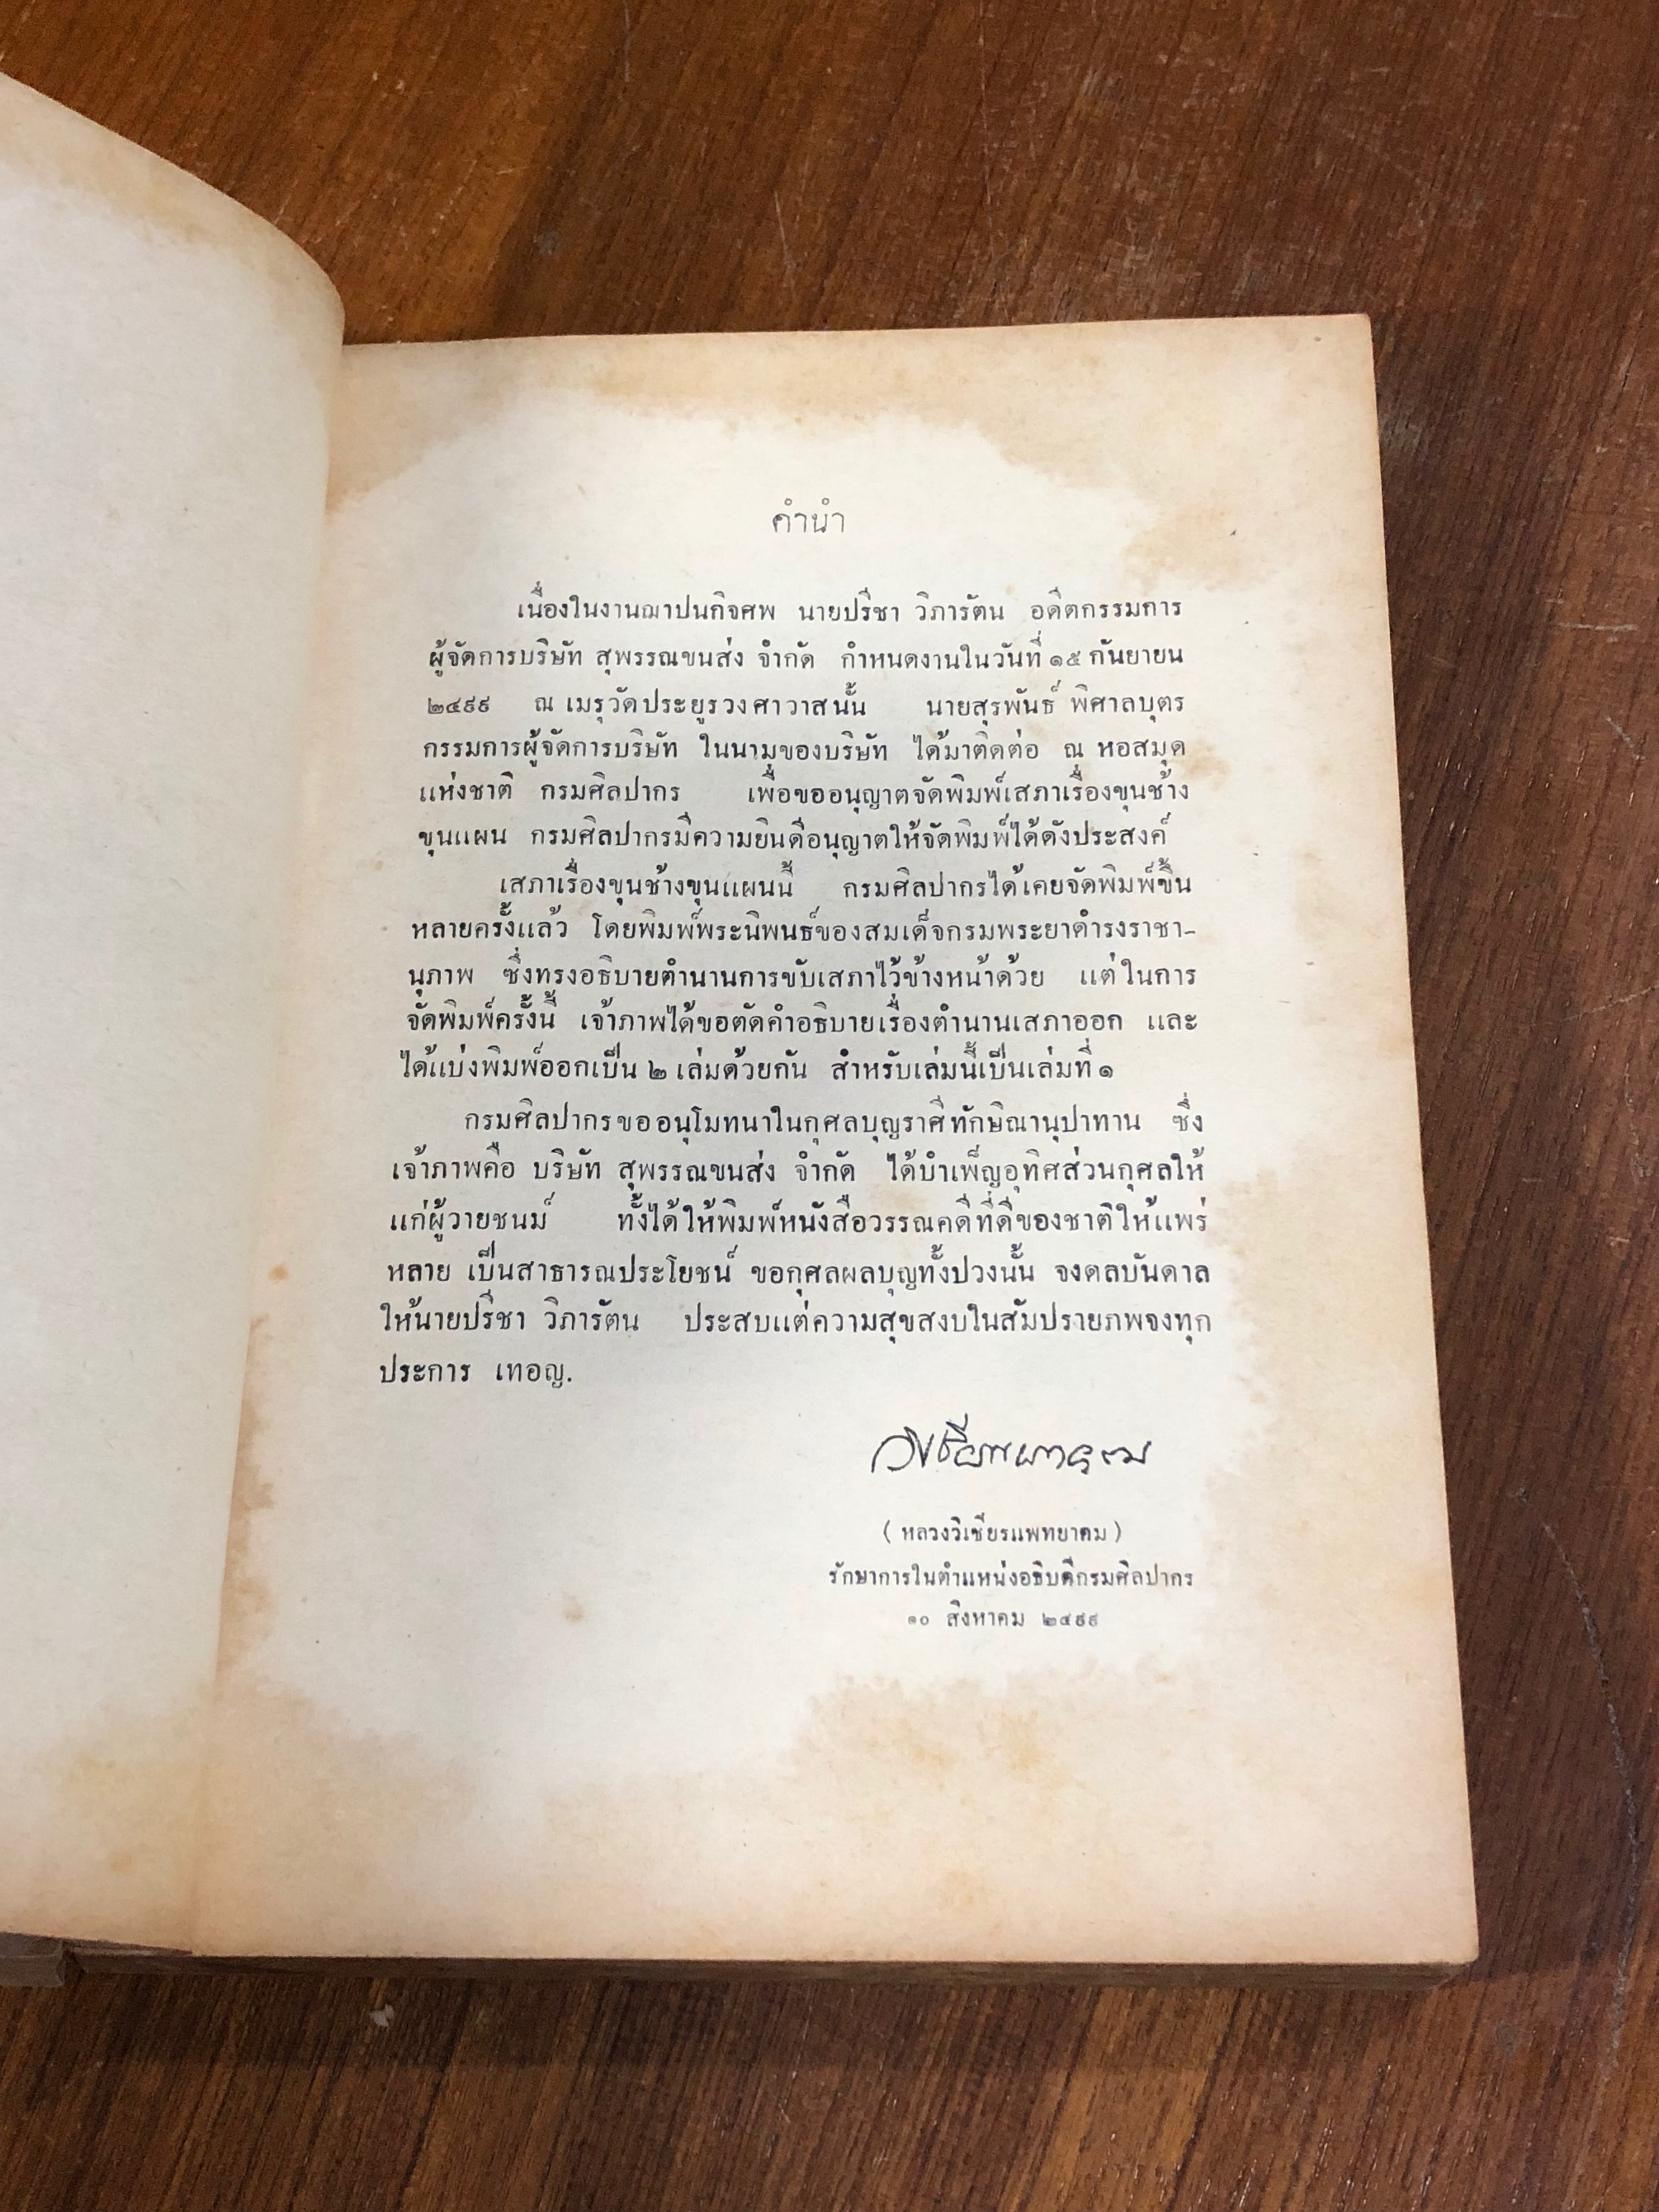 คำนำ
เนื่องในงานฌาปนกิจศพ นายปรีชา วิภารัตน อดีตกรรมการ
ผู้จัดการบริษัท สุพรรณขนส่ง จำกัด กำหนดงานในวันที่ ๑๕ กันยายน
๒๔๙๙ ณ เมรุวัดประยูรวงศาวาสนั้น นายสุรพันธ์ พิศาลบุตร
กรรมการผู้จัดการบริษัท ในนามของบริษัท ได้มาติดต่อ ณ หอสมุด
แห่งชาติ กรมศิลปากร เพื่อขออนุญาตจัดพิมพ์เสภาเรื่องขุนช้าง
ขุนแผน กรมศิลปากรมีความยินดีอนุญาตให้จัดพิมพ์ได้ดังประสงค์
เสภาเรื่องขุนช้างขุนแผนนี้ กรมศิลปากรได้เคยจัดพิมพ์ขึ้น
หลายครั้งแล้ว โดยพิมพ์พระนิพนธ์ของสมเด็จกรมพระยาดำรงราชา-
นุภาพ ซึ่งทรงอธิบายตำนานการขับเสภาไว้ข้างหน้าด้วย แต่ในการ
จัดพิมพ์ครั้งนี้ เจ้าภาพได้ขอตัดคำอธิบายเรื่องตำนานเสภาออก และ
ได้แบ่งพิมพ์ออกเป็น ๒ เล่มด้วยกัน สำหรับเล่มนี้เป็นเล่มที่ ๑
กรมศิลปากรขออนุโมทนาในกุศลบุญราศีทักษิณานุปาทาน ซึ่ง
เจ้าภาพคือ บริษัท สุพรรณขนส่ง จำกัด ได้บำเพ็ญอุทิศส่วนกุศลให้
แก่ผู้วายชนม์ ทั้งได้ให้พิมพ์หนังสือวรรณคดีที่ดีของชาติให้แพร่
หลาย เป็นสาธารณประโยชน์ ขอกุศลผลบุญทั้งปวงนั้น จงดลบันดาล
ให้นายปรีชา วิภารัตน ประสบแต่ความสุขสงบในสัมปรายภพจงทุก
ประการ เทอญ.
(หลวงวิเชียรแพทยาคม)
รักษาการในตำแหน่งอธิบดีกรมศิลปากร
๑๐ สิงหาคม ๒๔๙๙